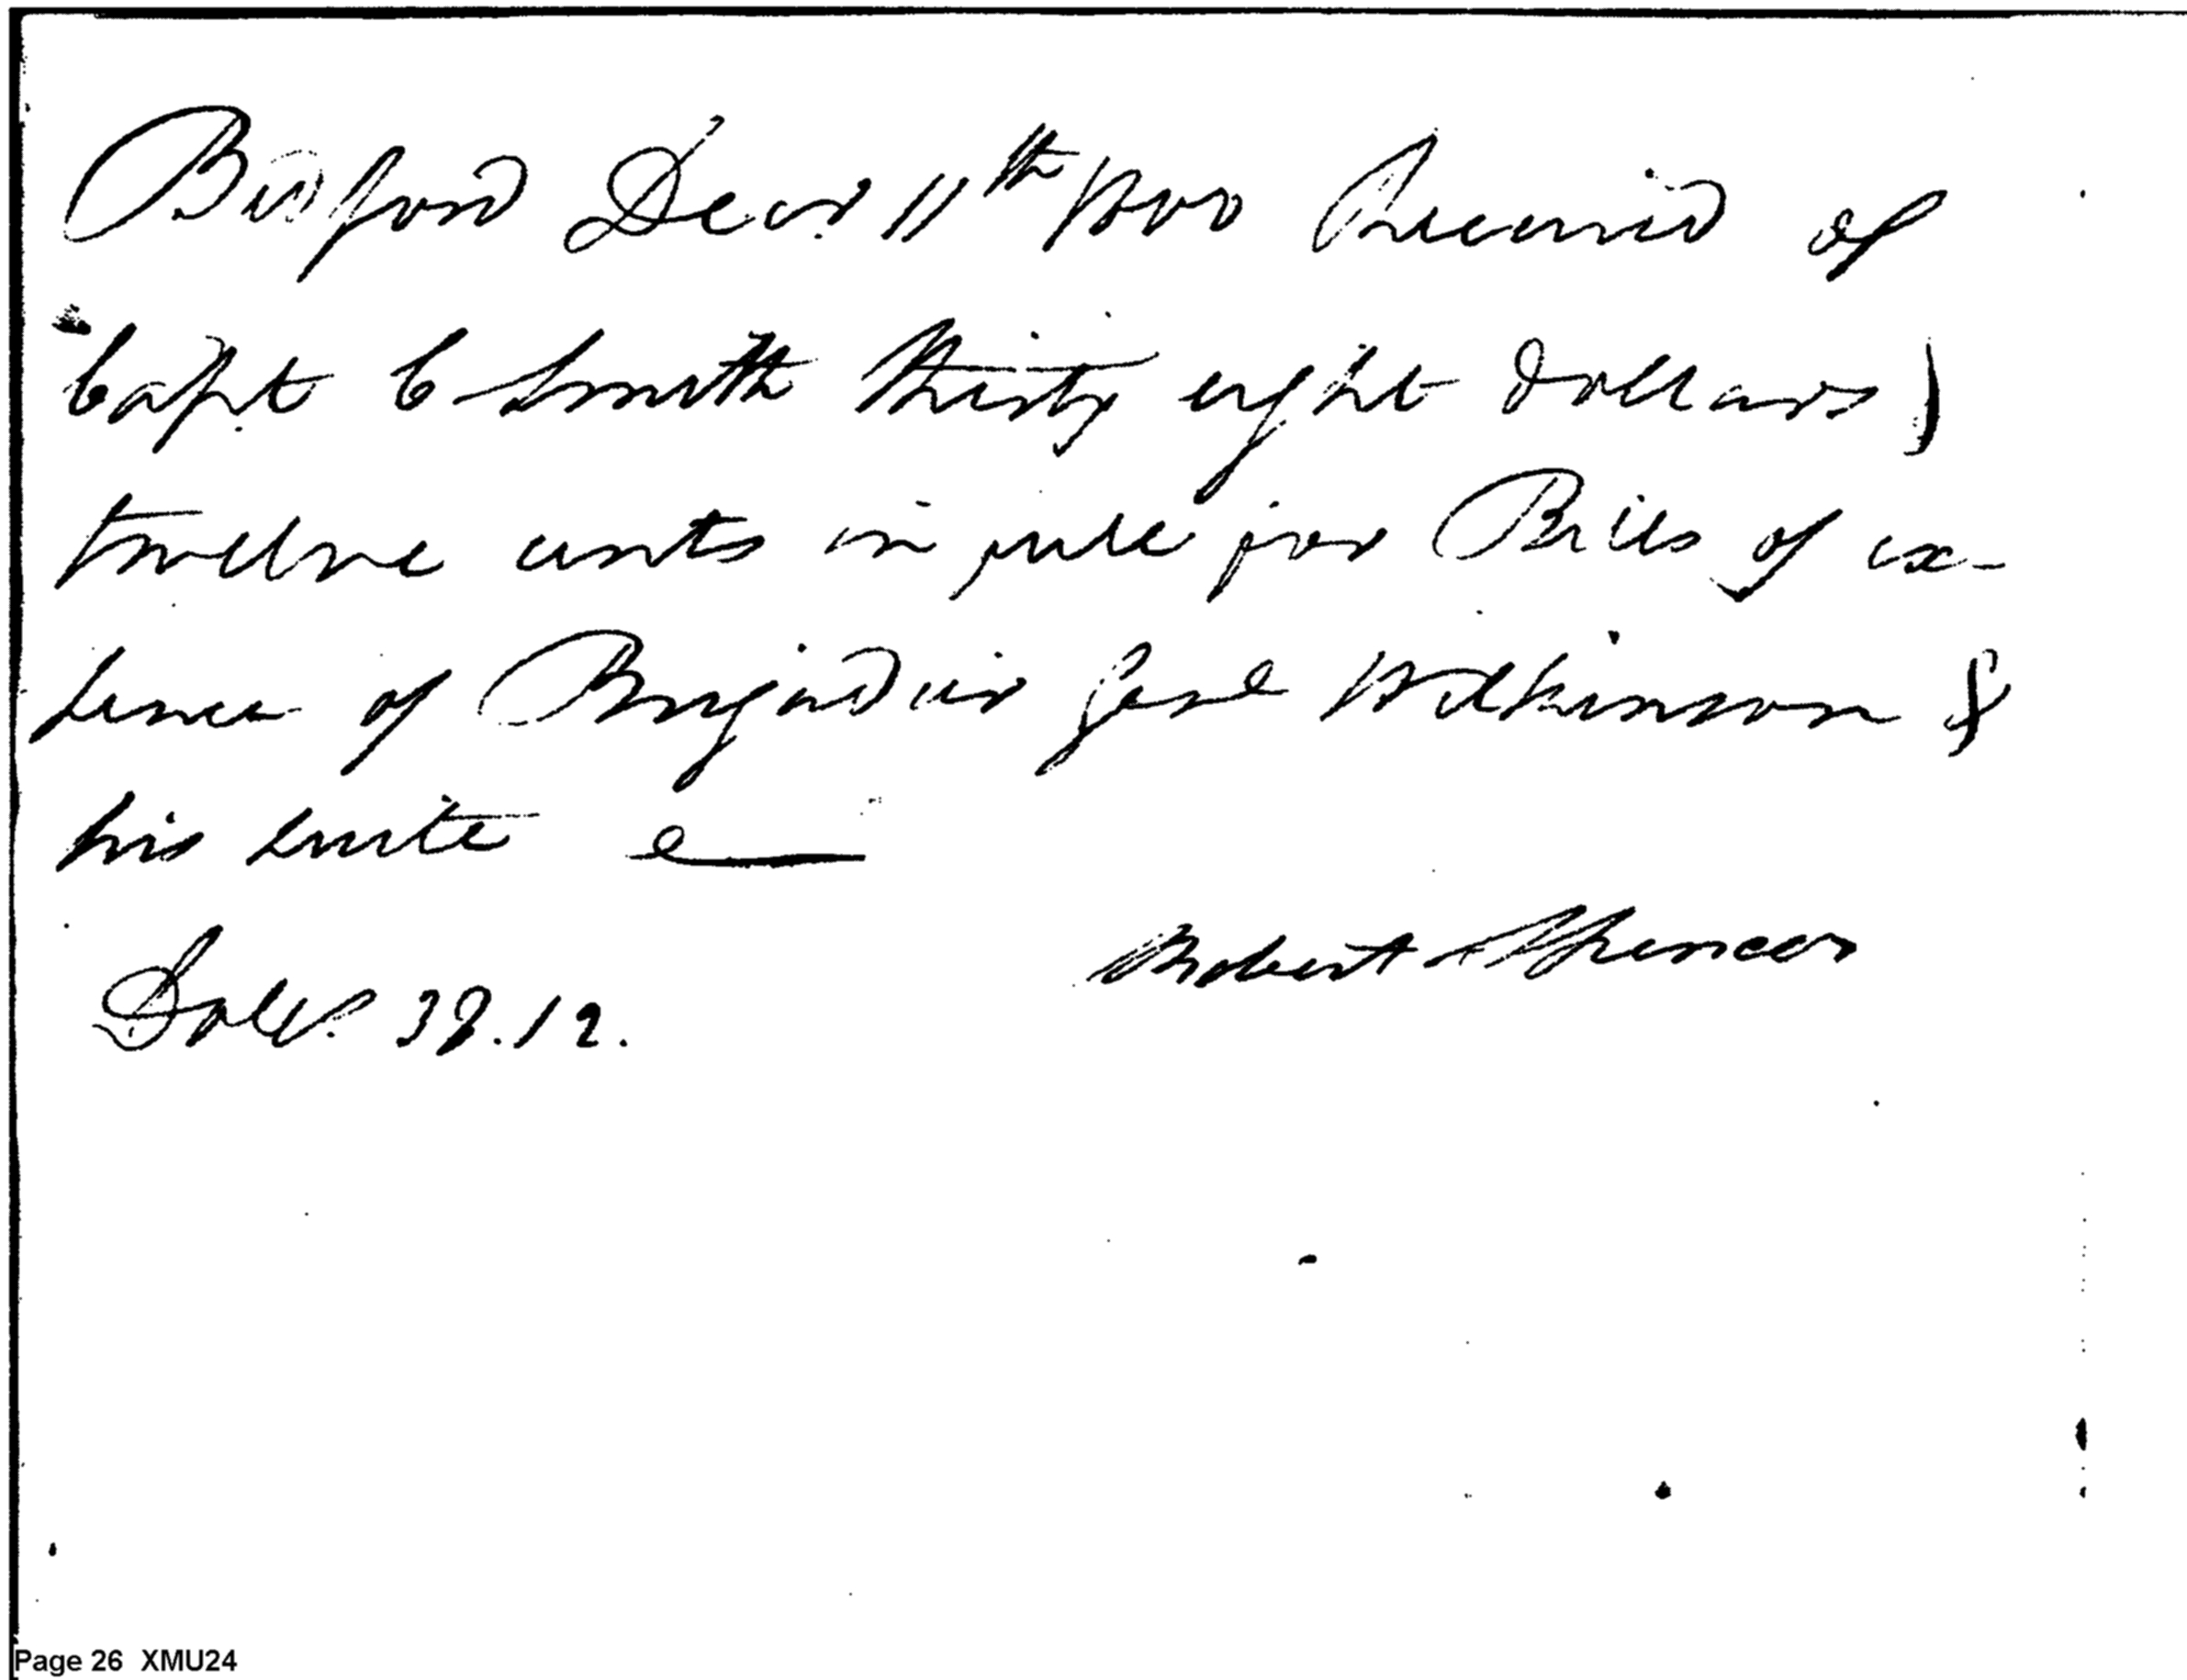 Bedford Decr. 11th 1800 Received of
Capt C Smith thirty eight Dollars &
twelve cents in full for Bills of ex-
pence of Brigadier Genl Wilkinson &
his suite
Robert Spencer
Dolls. 38.12.
Page 26 XMU24